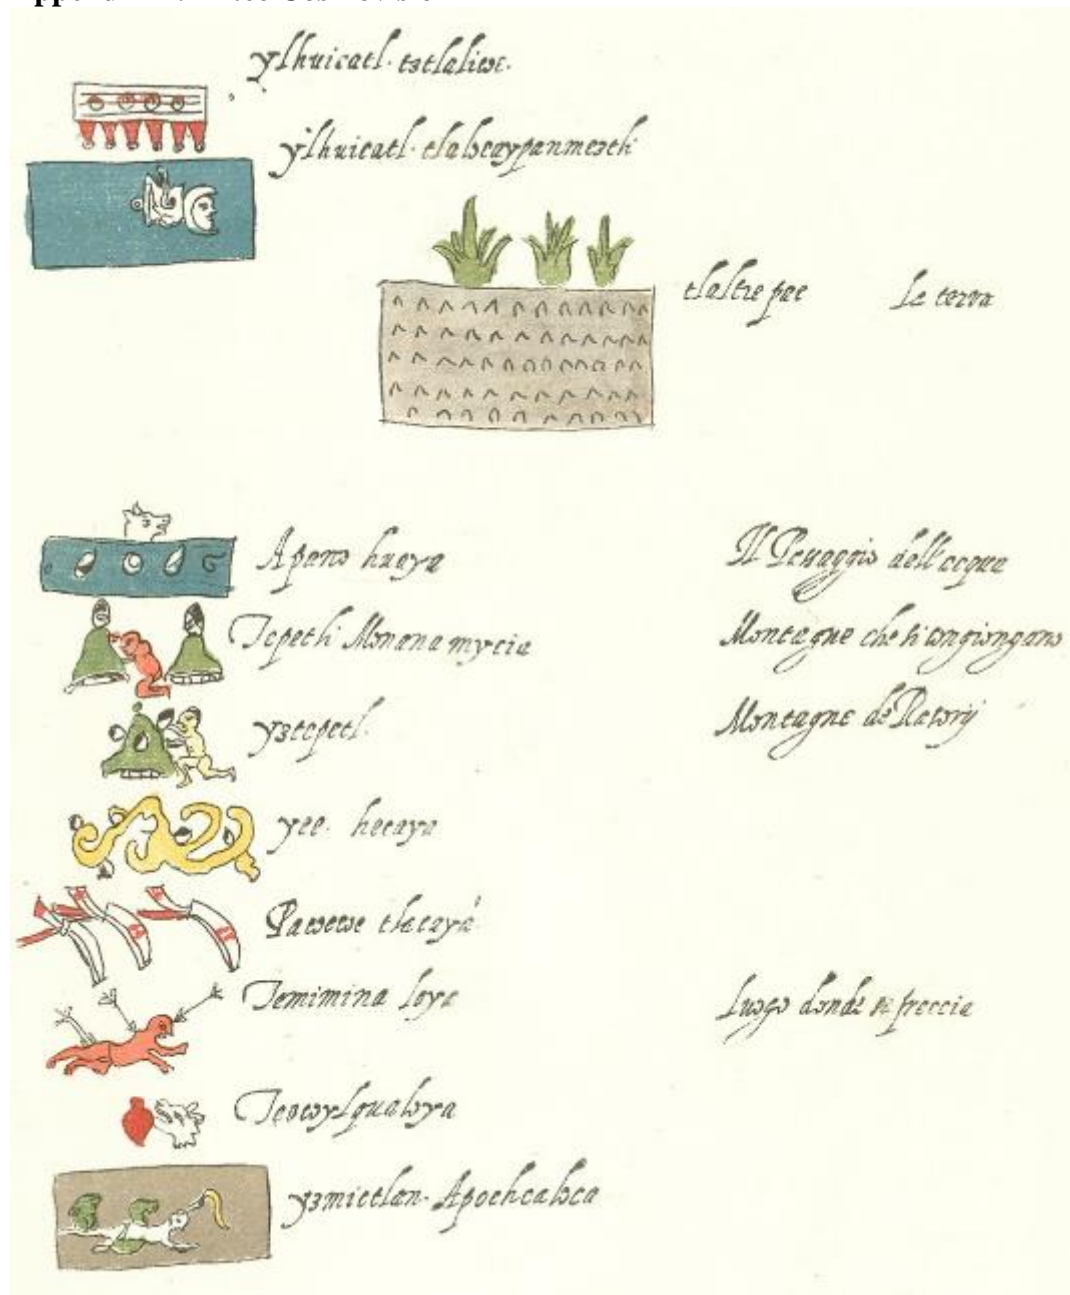 ylhuicatl.
ylhuicatl. tlalocaypanmeztli
tlaltic pac La terra
Apano huaya Il Passaggio dell'acqua
Tepetli Monana mycia Montagne che si congiongano
yztepetl. Montagne de Rasorij
yee. hecaya
Pacoecoe tlacaya
Temimina loya Luogo donde si freccia
Teocoylqualoya
yzmictlan. Apochcaloca